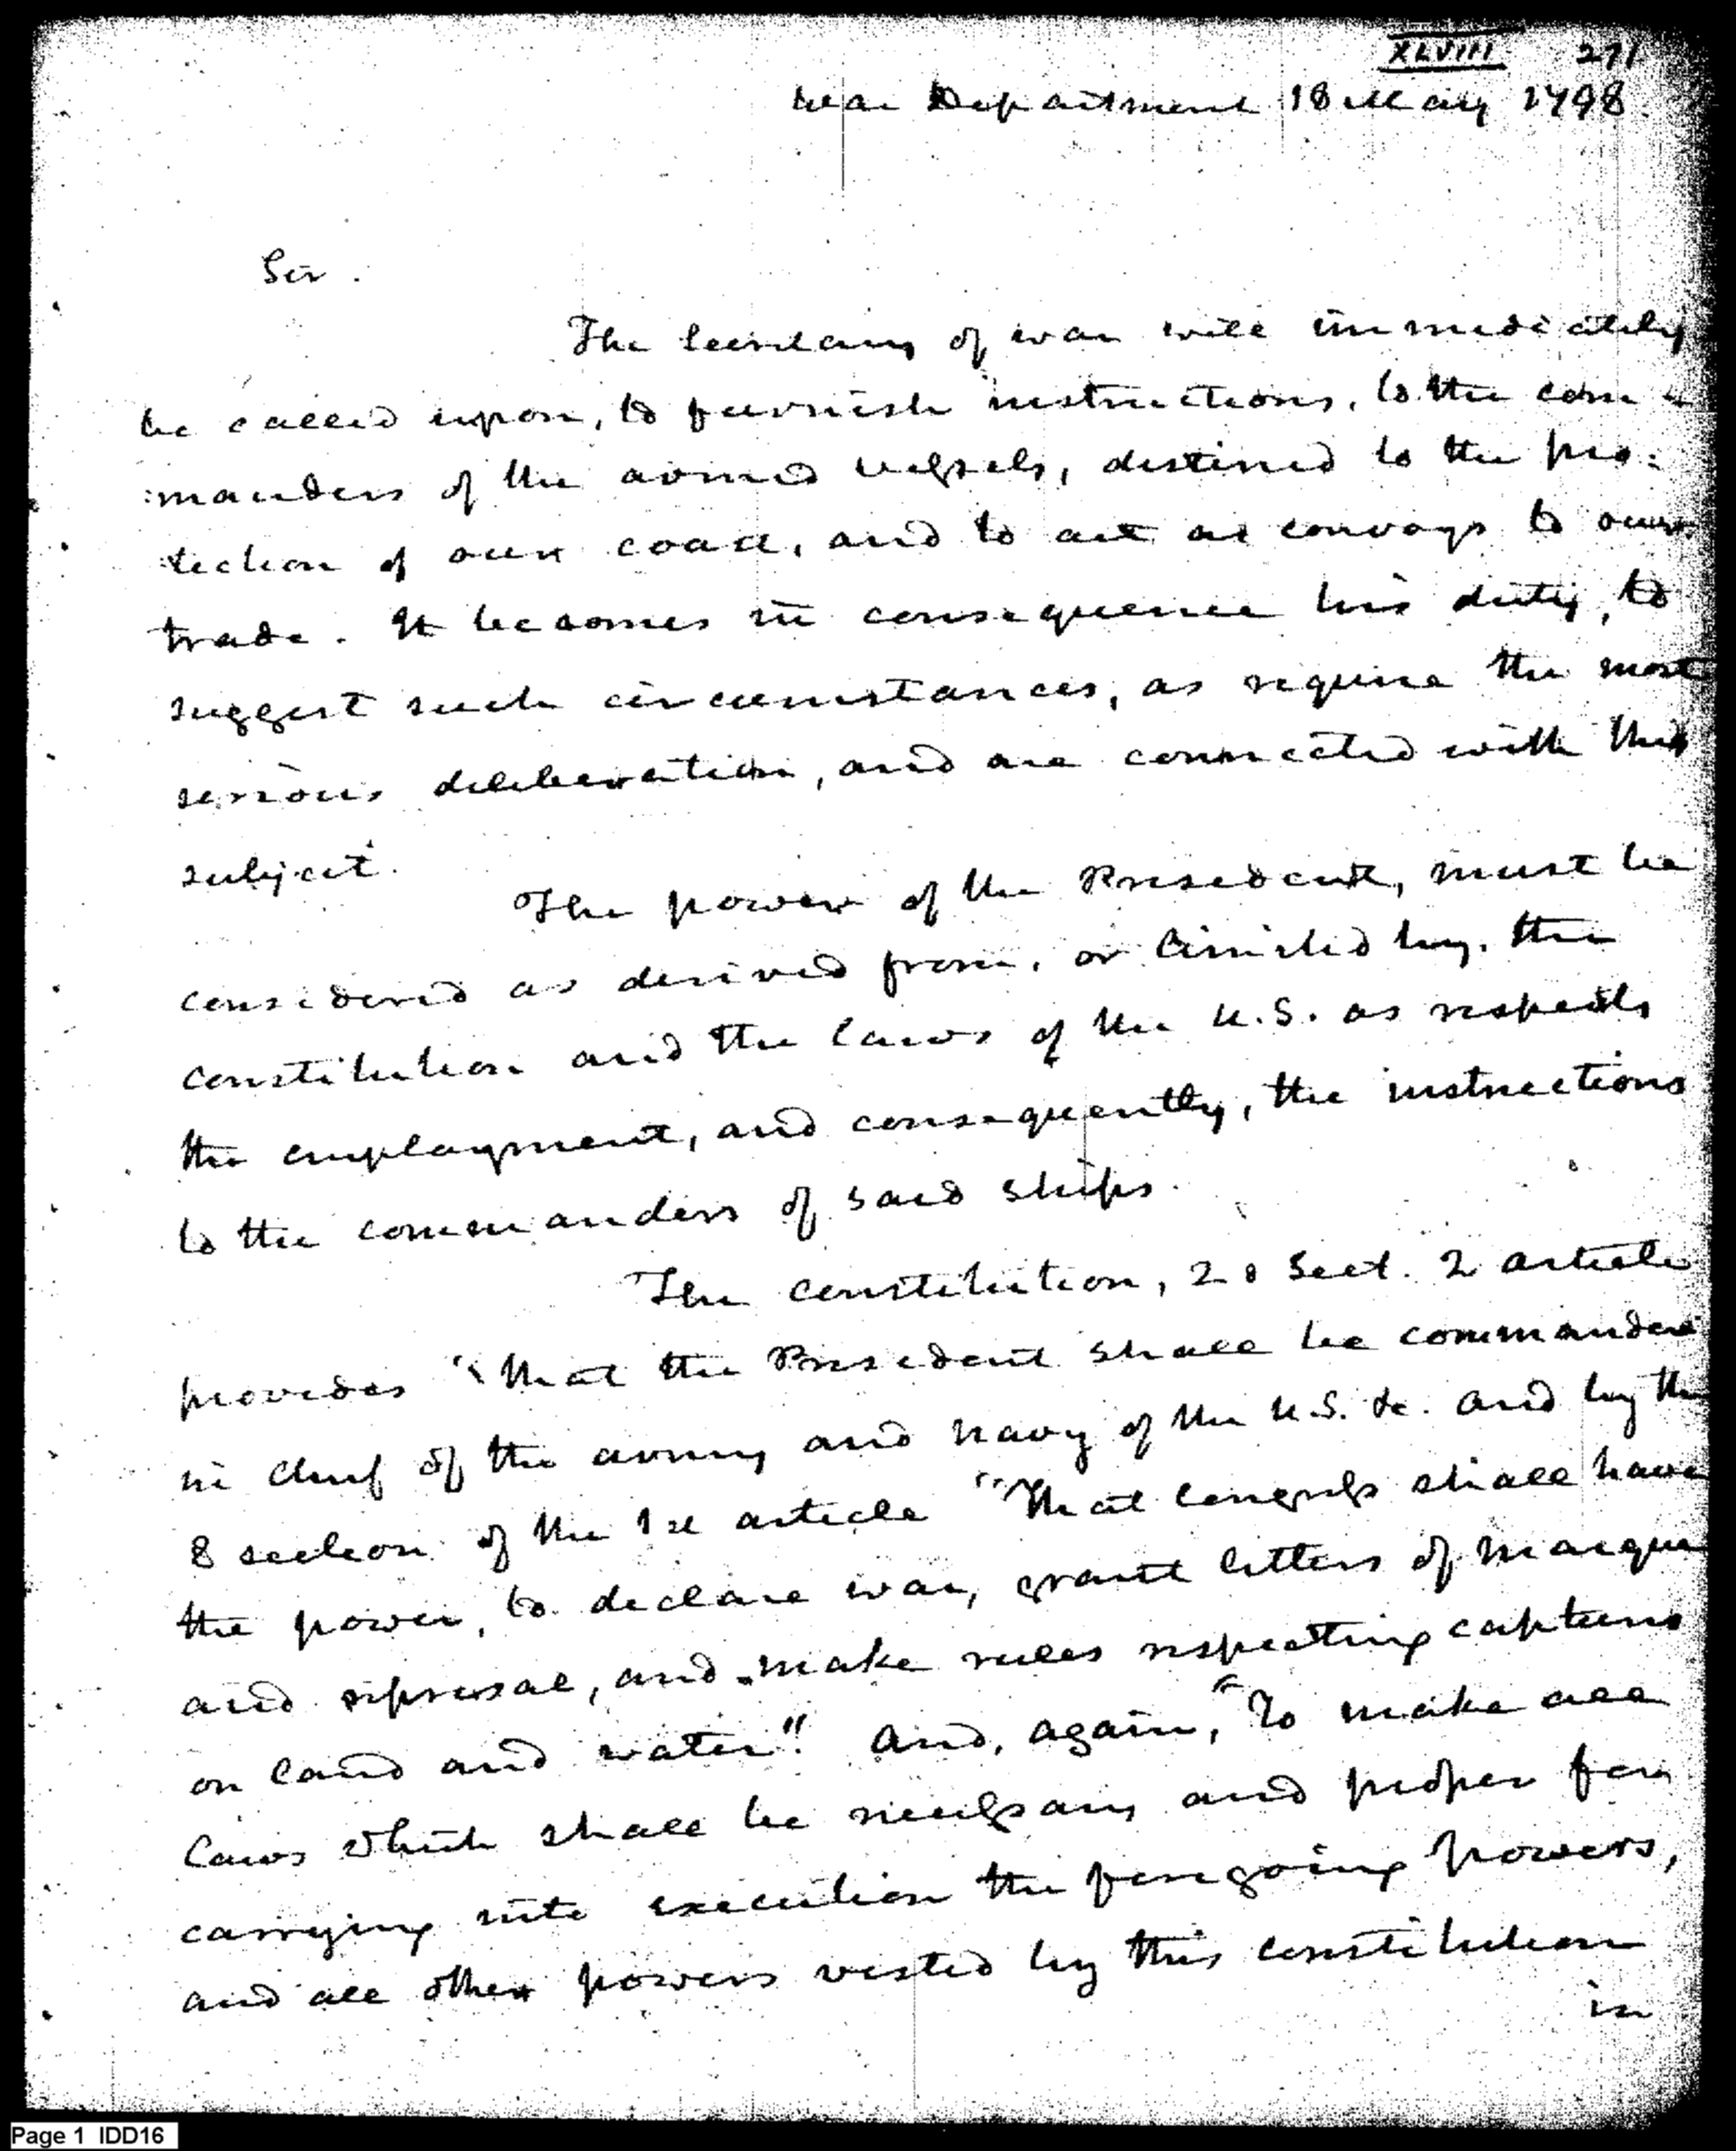 XLVIII 271
War Department 18 May 1798.
Sir.
The Secretary of war will immediately
be called upon, to furnish instructions, to the com =
:manders of the armed vessels, destined to the pro:
:tection of our coast, and to act as convoys to our
trade. It becomes in consequence his duty, to
suggest such circumstances, as require the most
serious deliberation, and are connected with this
subject.
The power of the President, must be
considered as derived from, or limited by, the
constitution and the laws of the U.S. as respects
the employment, and consequently, the instructions
to the commanders of said ships.
The constitution, 2d Sect. 2 article
provides "that the President shall be commander
in chief of the army and navy of the U.S. &c. and by the
8 section of the 1st article "That Congress shall have
the power, to declare war, grant letters of marque
and reprisal, and make rules respecting captures
on land and water." And, again, "To make all
laws which shall be necessary and proper for
carrying into execution the foregoing powers,
and all other powers vested by this constitution
in
Page 1 IDD16